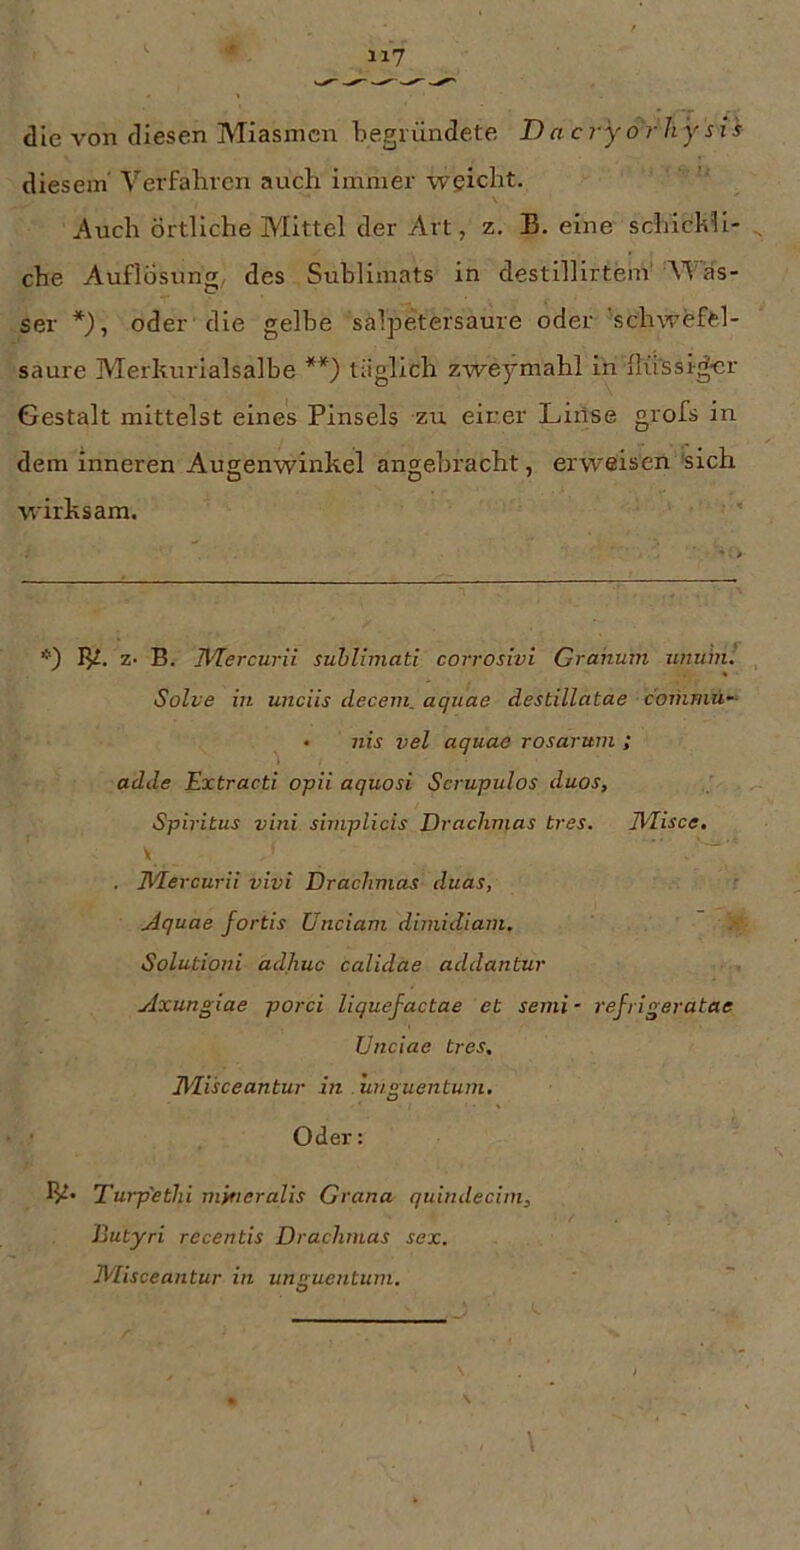 117
die von diesen Miasmen begründete Dacryorhysis
diesem Verfahren auch immer weicht.
Auch örtliche Mittel der Art, z. B. eine schickli-
che Auflösung des Sublimats in destillirtem Was-
ser *), oder die gelbe salpetersaure oder schwefel-
saure Merkurialsalbe **) täglich zweymahl in flüssiger
Gestalt mittelst eines Pinsels zu einer Linse groſs in
dem inneren Augenwinkel angebracht, erweisen sich
wirksam.
*) ℞. z. B. Mercurii sublimati corrosivi Granum unum.
Solve in unciis decem aquae destillatae commu-
nis vel aquae rosarum;
adde Extracti opii aquosi Scrupulos duos,
Spiritus vini simplicis Drachmas tres. Misce.
Mercurii vivi Drachmas duas,
Aquae fortis Unciam dimidiam.
Solutioni adhuc calidae addantur
Axungiae porci liquefactae et semi-refrigeratae
Unciae tres.
Misceantur in unguentum.
Oder:
℞. Turpethi mineralis Grana quindecim,
Butyri recentis Drachmas sex.
Misceantur in unguentum.